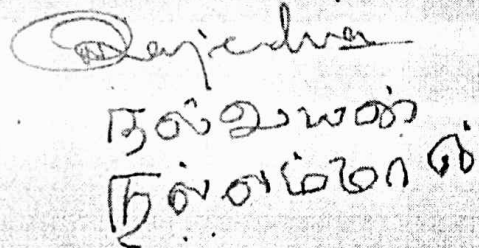 Rajedra
நல்லயன்
நல்லம்மாள்